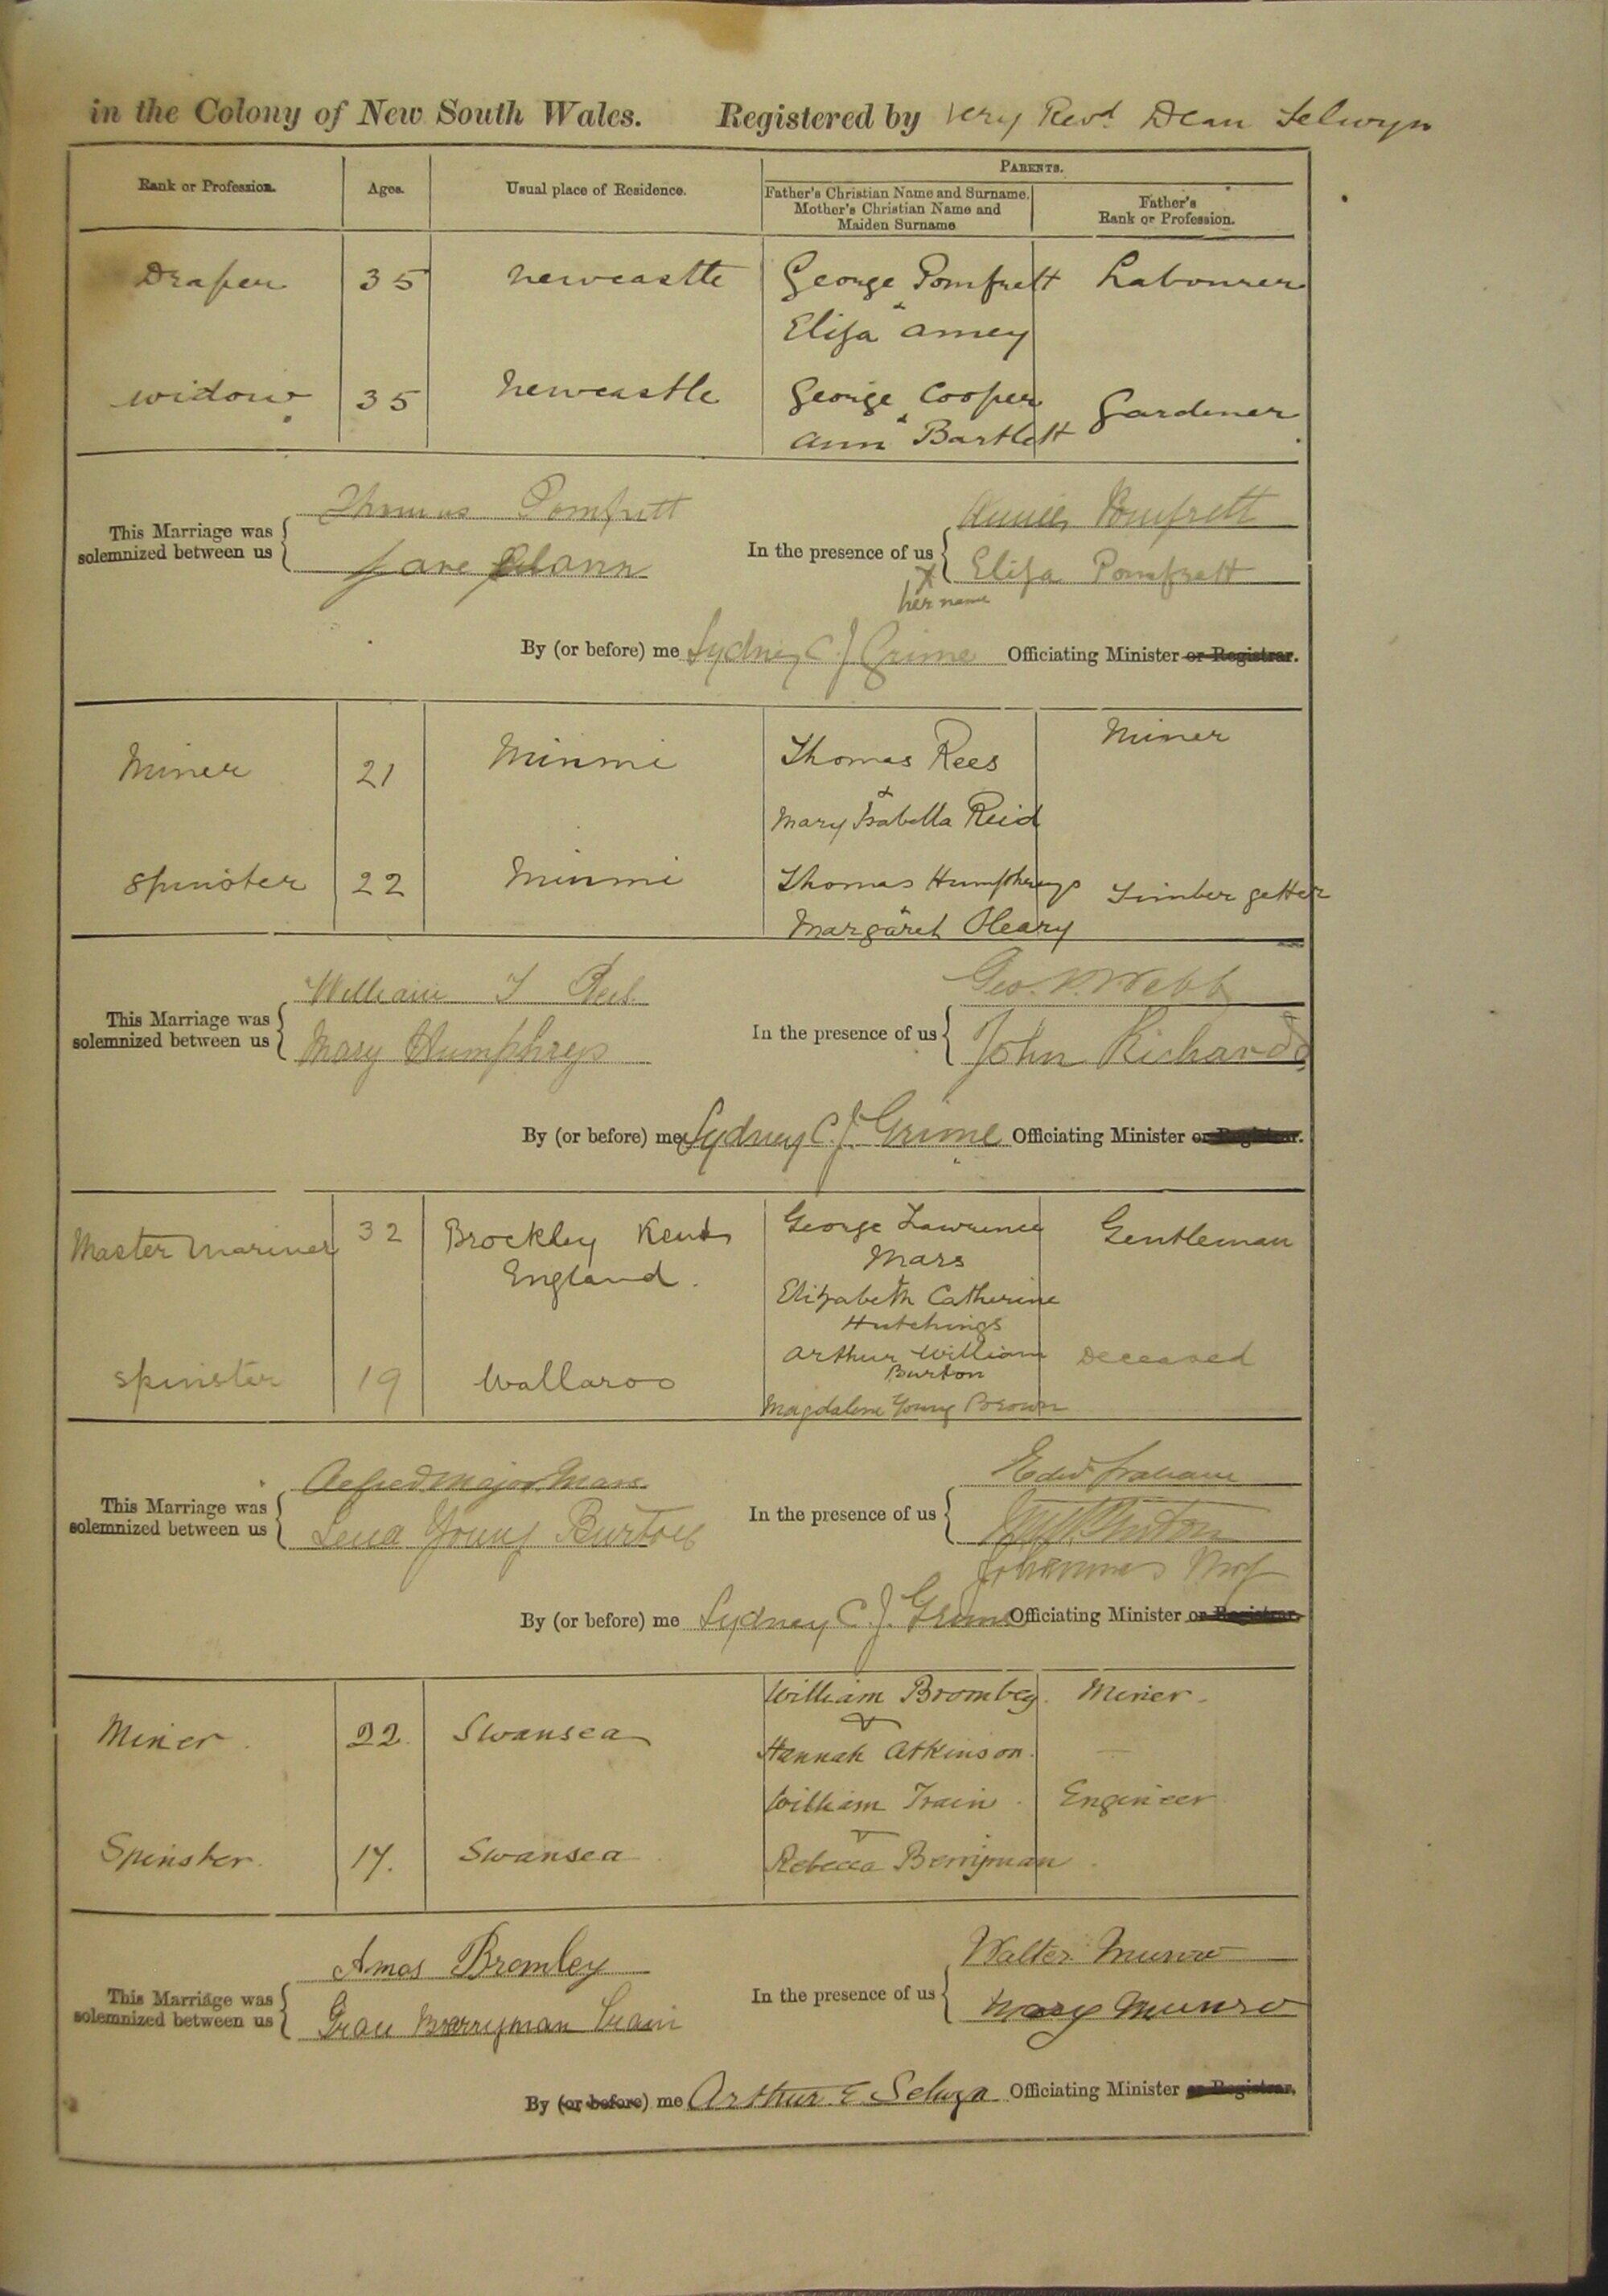 in the Colony of New South Wales. Registered by Very Revd Dean Selwyn
PARENTS.
Rank or Profession. Ages. Usual place of Residence. Father's Christian Name and Surname. Father's
Mother's Christian Name and Rank or Profession.
Maiden Surname
Draper 35 Newcastle George Pomfrett Labourer
&
Eliza Amey
widow 35 Newcastle George Cooper Gardener
&
Ann Bartlett
Thomas Pomfrett Pomfrett
This Marriage was In the presence of us
solemnized between us
Jane Eliza Pomfrett
X
her name
By (or before) me Sydney C J Grime Officiating Minister or Registrar.
Miner 21 Minmi Thomas Rees Miner
&
Mary Isabella Reid
Spinster 22 Minmi Thomas Humphreys Timber getter
&
Margaret Oleary
William T Rees Geo. Webb
This Marriage was In the presence of us
solemnized between us
Mary Humphreys John Richards
By (or before) me Sydney C. J. Grime Officiating Minister or Registrar.
Master Mariner 32 Brockley Kent George Lawrence Gentleman
England. Mars
&
Elizabeth Catherine
Hutchings
spinster 19 Wallaroo Arthur William Deceased
Burton
Magdalene Young Brown
Alfred Major Mars Edw Graham
This Marriage was In the presence of us
solemnized between us
Lena Young Burton Burton
Johannes
By (or before) me Sydney C. J. Grime Officiating Minister or Registrar.
Miner. 22. Swansea William Bromley. Miner.
&
Hannah Atkinson.
William Train. Engineer
&
Spinster. 17. Swansea. Rebecca Berryman.
Amos Bromley Walter Munro
This Marriage was In the presence of us
solemnized between us
Grace Berryman Train Mary Munro
By (or before) me Arthur E Selwyn Officiating Minister or Registrar.